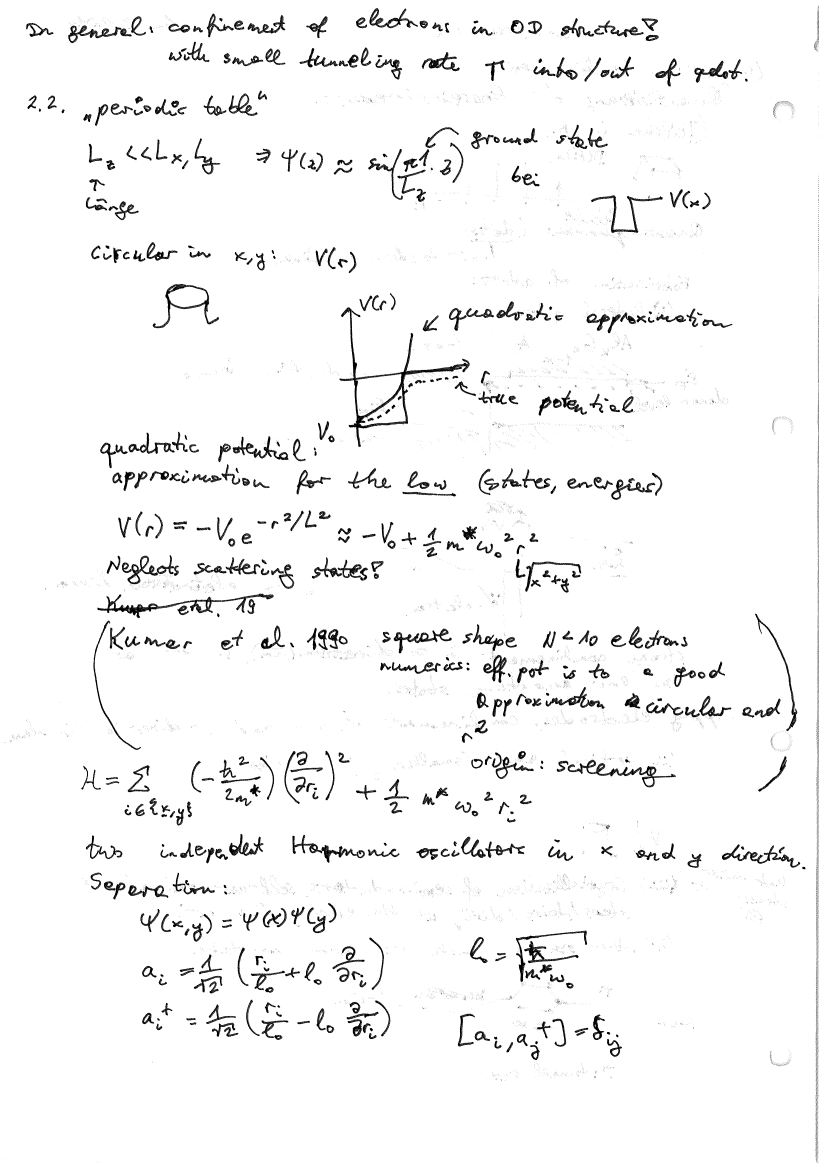 In general: confinement of electrons in 0D structure!
with small tunneling rate Γ into/out of qdot.
2.2. "periodic table"
L_z << L_x, L_y ⇒ Ψ(z) ≈ sin(π1/L_z · z) ground state
↑ bei
Länge V(x)
Circular in x,y: V(r)
V(r)
quadratic approximation
r
true potential
V_0
quadratic potential:
approximation for the low (states, energies)
V(r) = -V_0 e^{-r²/L²} ≈ -V_0 + 1/2 m* ω_0² r²
√(x²+y²)
Neglects scattering states!
Kumar et al. 19
(Kumar et al. 1990 square shape N < 10 electrons
numerics: eff. pot is to a good
approximation circular and
r²
origin: screening )
H = Σ_{i∈{x,y}} (-ħ²/2m*) (∂/∂r_i)² + 1/2 m* ω_0² r_i²
two independent Harmonic oscillators in x and y direction.
Separation:
Ψ(x,y) = Ψ(x)Ψ(y)
a_i = 1/√2 (r_i/l_0 + l_0 ∂/∂r_i) l_0 = √(ħ/m*ω_0)
a_i^+ = 1/√2 (r_i/l_0 - l_0 ∂/∂r_i) [a_i, a_j^+] = δ_ij